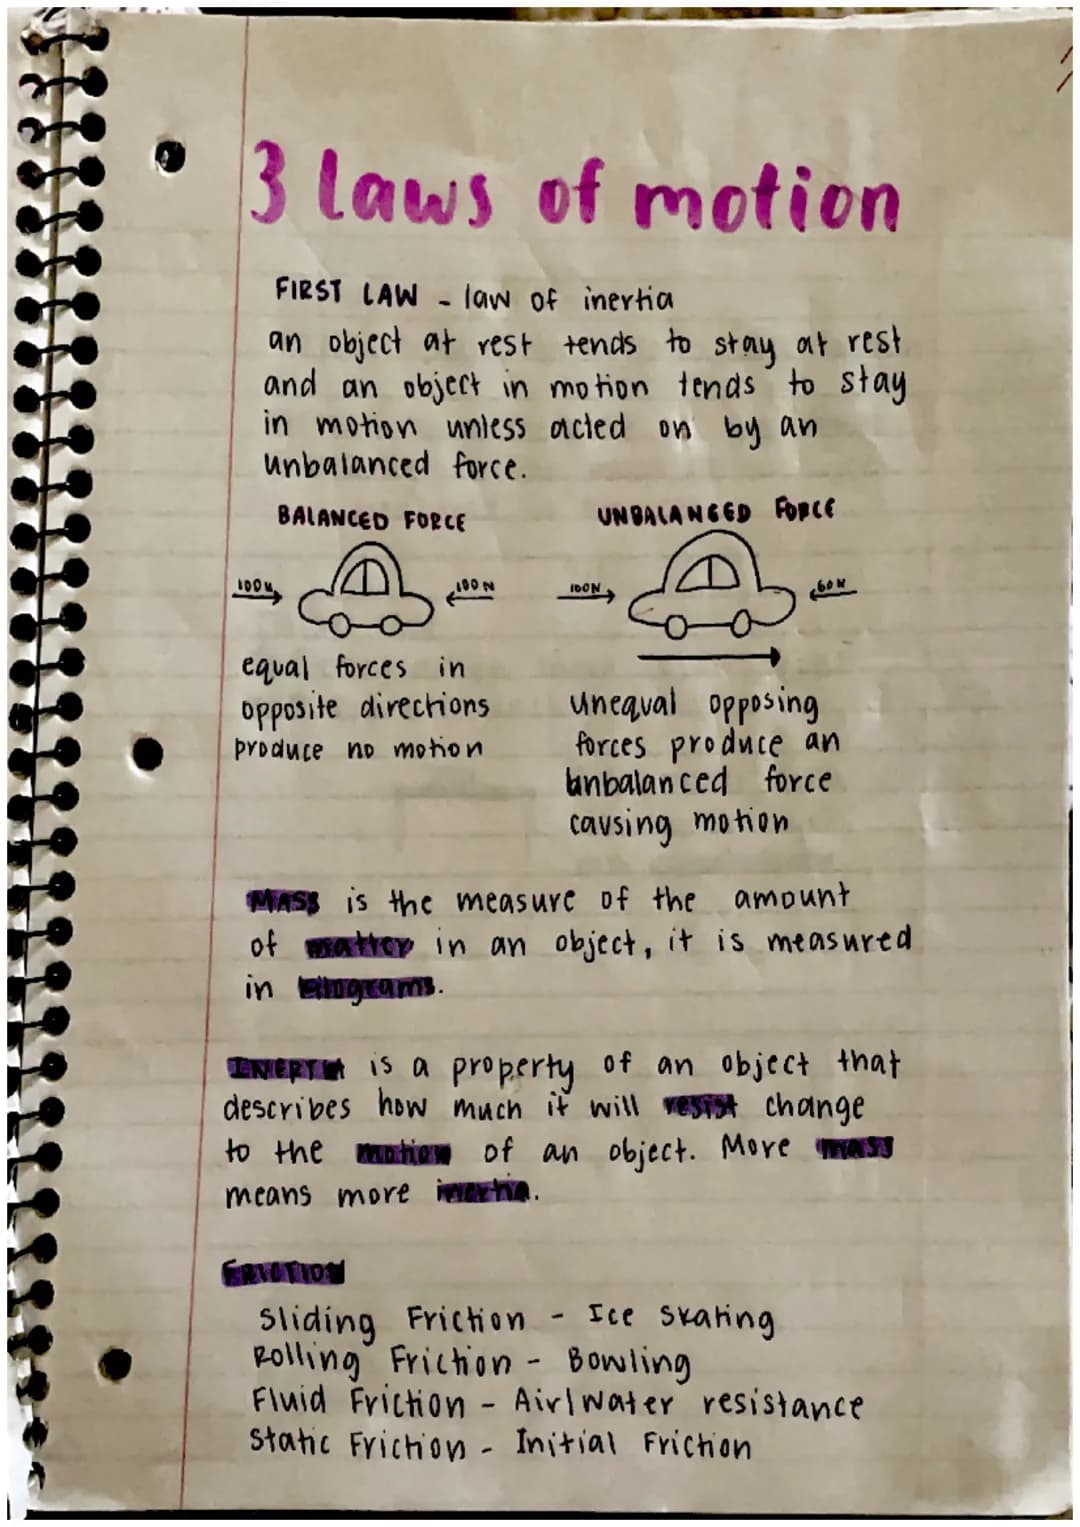 3 laws of motion
FIRST LAW - law of inertia
an object at rest tends to stay at rest
and an object in motion tends to stay
in motion unless acted on by an
unbalanced force.
BALANCED FORCE
UNBALANCED FORCE
100N
100N
100N
60N
equal forces in
opposite directions
produce no motion
unequal opposing
forces produce an
unbalanced force
causing motion
MASS is the measure of the amount
of matter in an object, it is measured
in kilograms.
INERTIA is a property of an object that
describes how much it will resist change
to the motion of an object. More mass
means more inertia.
FRICTION
Sliding Friction - Ice Skating
Rolling Friction - Bowling
Fluid Friction - Air/Water resistance
Static Friction - Initial Friction